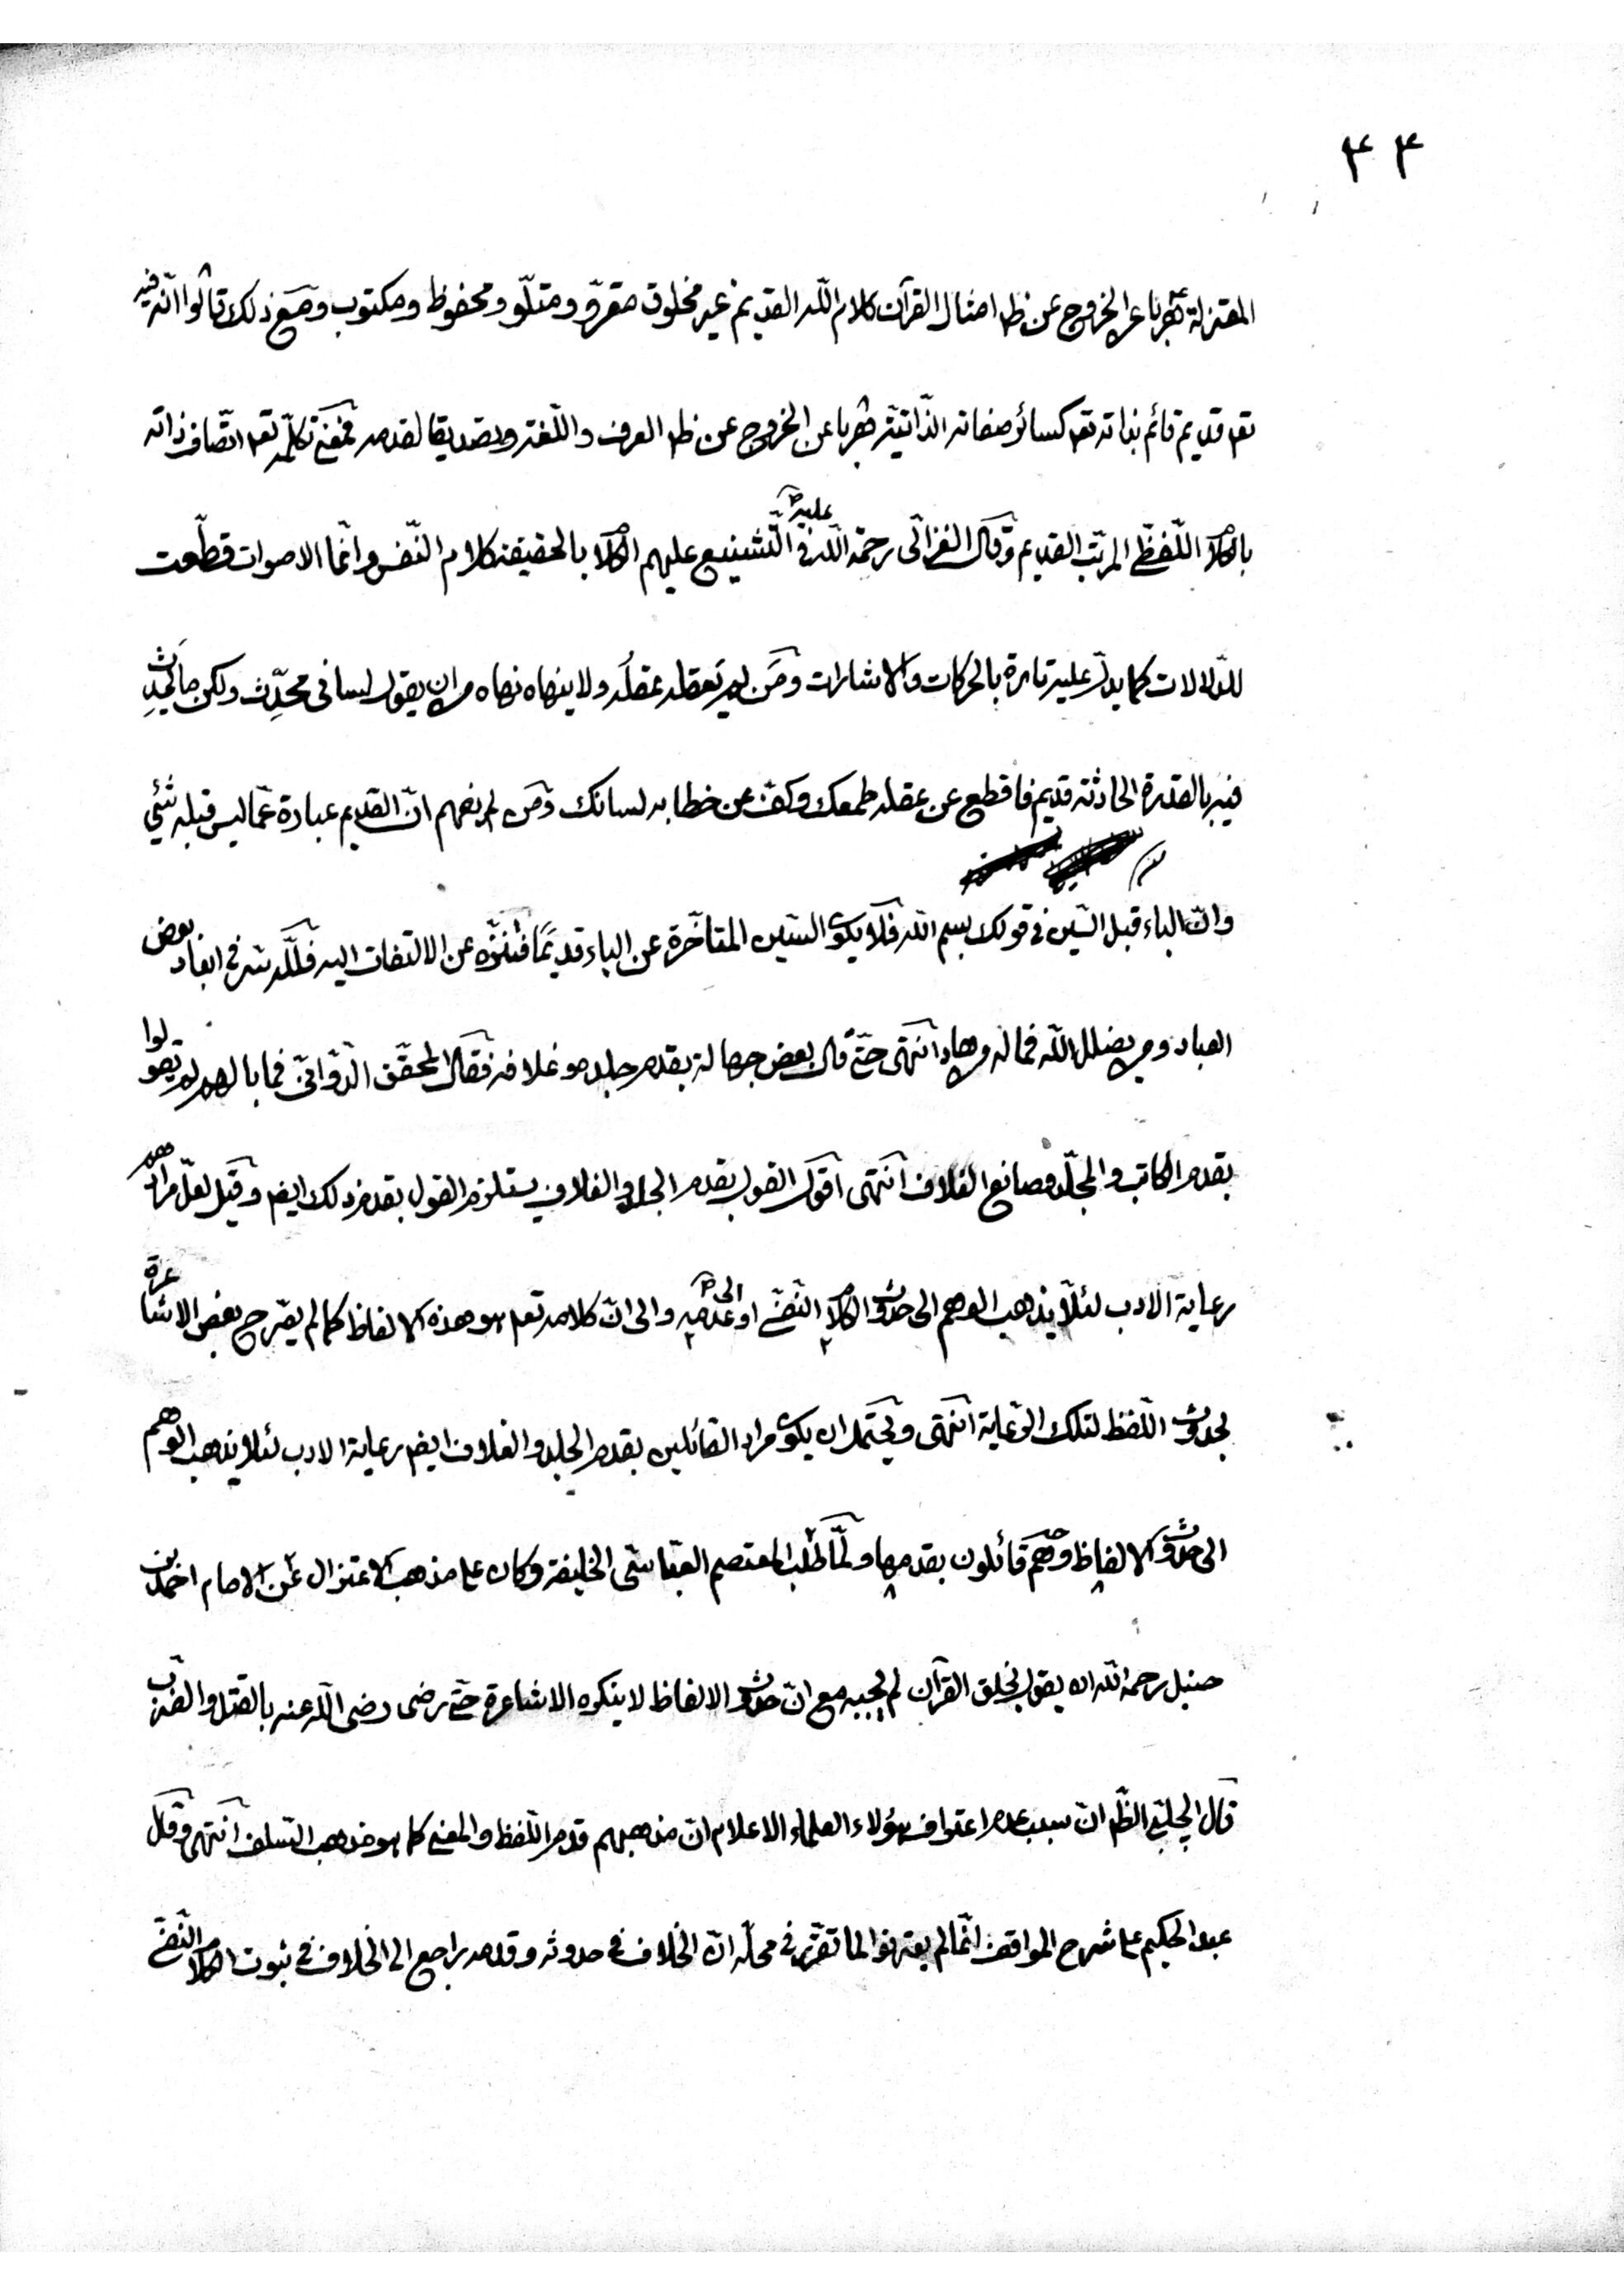 ٣٤
المعتزلة هربا عن الخروج عن ظ امثال القرآن كلام اللّه القديم غير مخلوق مقروّ ومتلّو ومحفوظ ومكتوب ومَع ذلك قالوا انّه فيه
تعـ قديم قائم بذاته تعـ كسائر صفاته الذّاتيّة هربا عن الخروج عن ظ العرف واللّغة وتصديقا لقدمه فمعنَى تكلّمه تعـ اتّصاف ذاته
بالكلام اللّفظّى المرتّب القديم وقال الغزالّى رحمة اللّه عليه فى التّشنيع عليهم الكلام بالحقيقة كلام النّفس وانّما الاصوات قطّعت
للدّلالات كما يدلّ عليه تارة بالحركات والاشارات ومَن لم يَعقله عقلُه ولا ينهاه نهاه من ان يقول لسانى محدِث ولكن ما يَحدث
فيه بالقدرة الحادثة قديم فاقطع عن عقله طمعك وكفّ عن خطابه لسانك ومَن لم يفهم انّ القديم عبارة عمّا ليس قبله شئ
وانّ الباء قبل السّين فى قولك بسم اللّه فلا يكون السّين المتاخّرة عن الباء قديمًا فنَزّه عن الالتفات اليه فللّه سّر فى ابعاد بعض
العباد ومن يضلل اللّه فما له من هاد انتهى حتّى قال بعض جهالة بقدم جلده وغلافه فقال المحقّق الدّوّانىّ فما بالهم لم يقولوا
بقدم الكاتب والمجلّد وصانع الغلاف انتهى اقول القول بقدم الجلد والغلاف يستلزم القول بقدم ذلك ايضـ وقيل لعلّ مرادهم
رعاية الادب لئلّا يذهب الوهم الى حدوث الكلام النّفسّى او الى عدمه والى انّ كلامه تعـ هو هذه الالفاظ كما لم يصّرح بعض الاشاعرة
بحدوث اللّفظ لتلك الرّعاية انتهى ويحتمل ان يكون مراد القائلين بقدم الجلد والغلاف ايضـ رعاية الادب لئلا يذهب الوهم
الى حدوث الالفاظ وهم قائلون بقدمها ولمّا طلب المعتصم العبّاسّى الخليفة وكان على مذهب الاعتزال عن الامام احمد بن
حنبل رحمه اللّه ان يقول بخلق القرآن لم يجبه مع انّ حدوث الالفاظ لا ينكره الاشاعرة حتّى رضى رضى اللّه عنه بالقتل والضرب
قال الچلبىّ الظّـ انّ سبب عدم اعتراف هؤلاء العلماء الاعلام انّ مذهبهم قدم اللّفظ والمعنى كما هو مذهب السّلف انتهى وقال
عبد الحكيم على شرح المواقف انّما لم يعترفوا لما تقّرر فى محلّه انّ الخلاف فى حدوثه وقدمه راجع الى الخلاف فى ثبوت الكلام النّفسّى